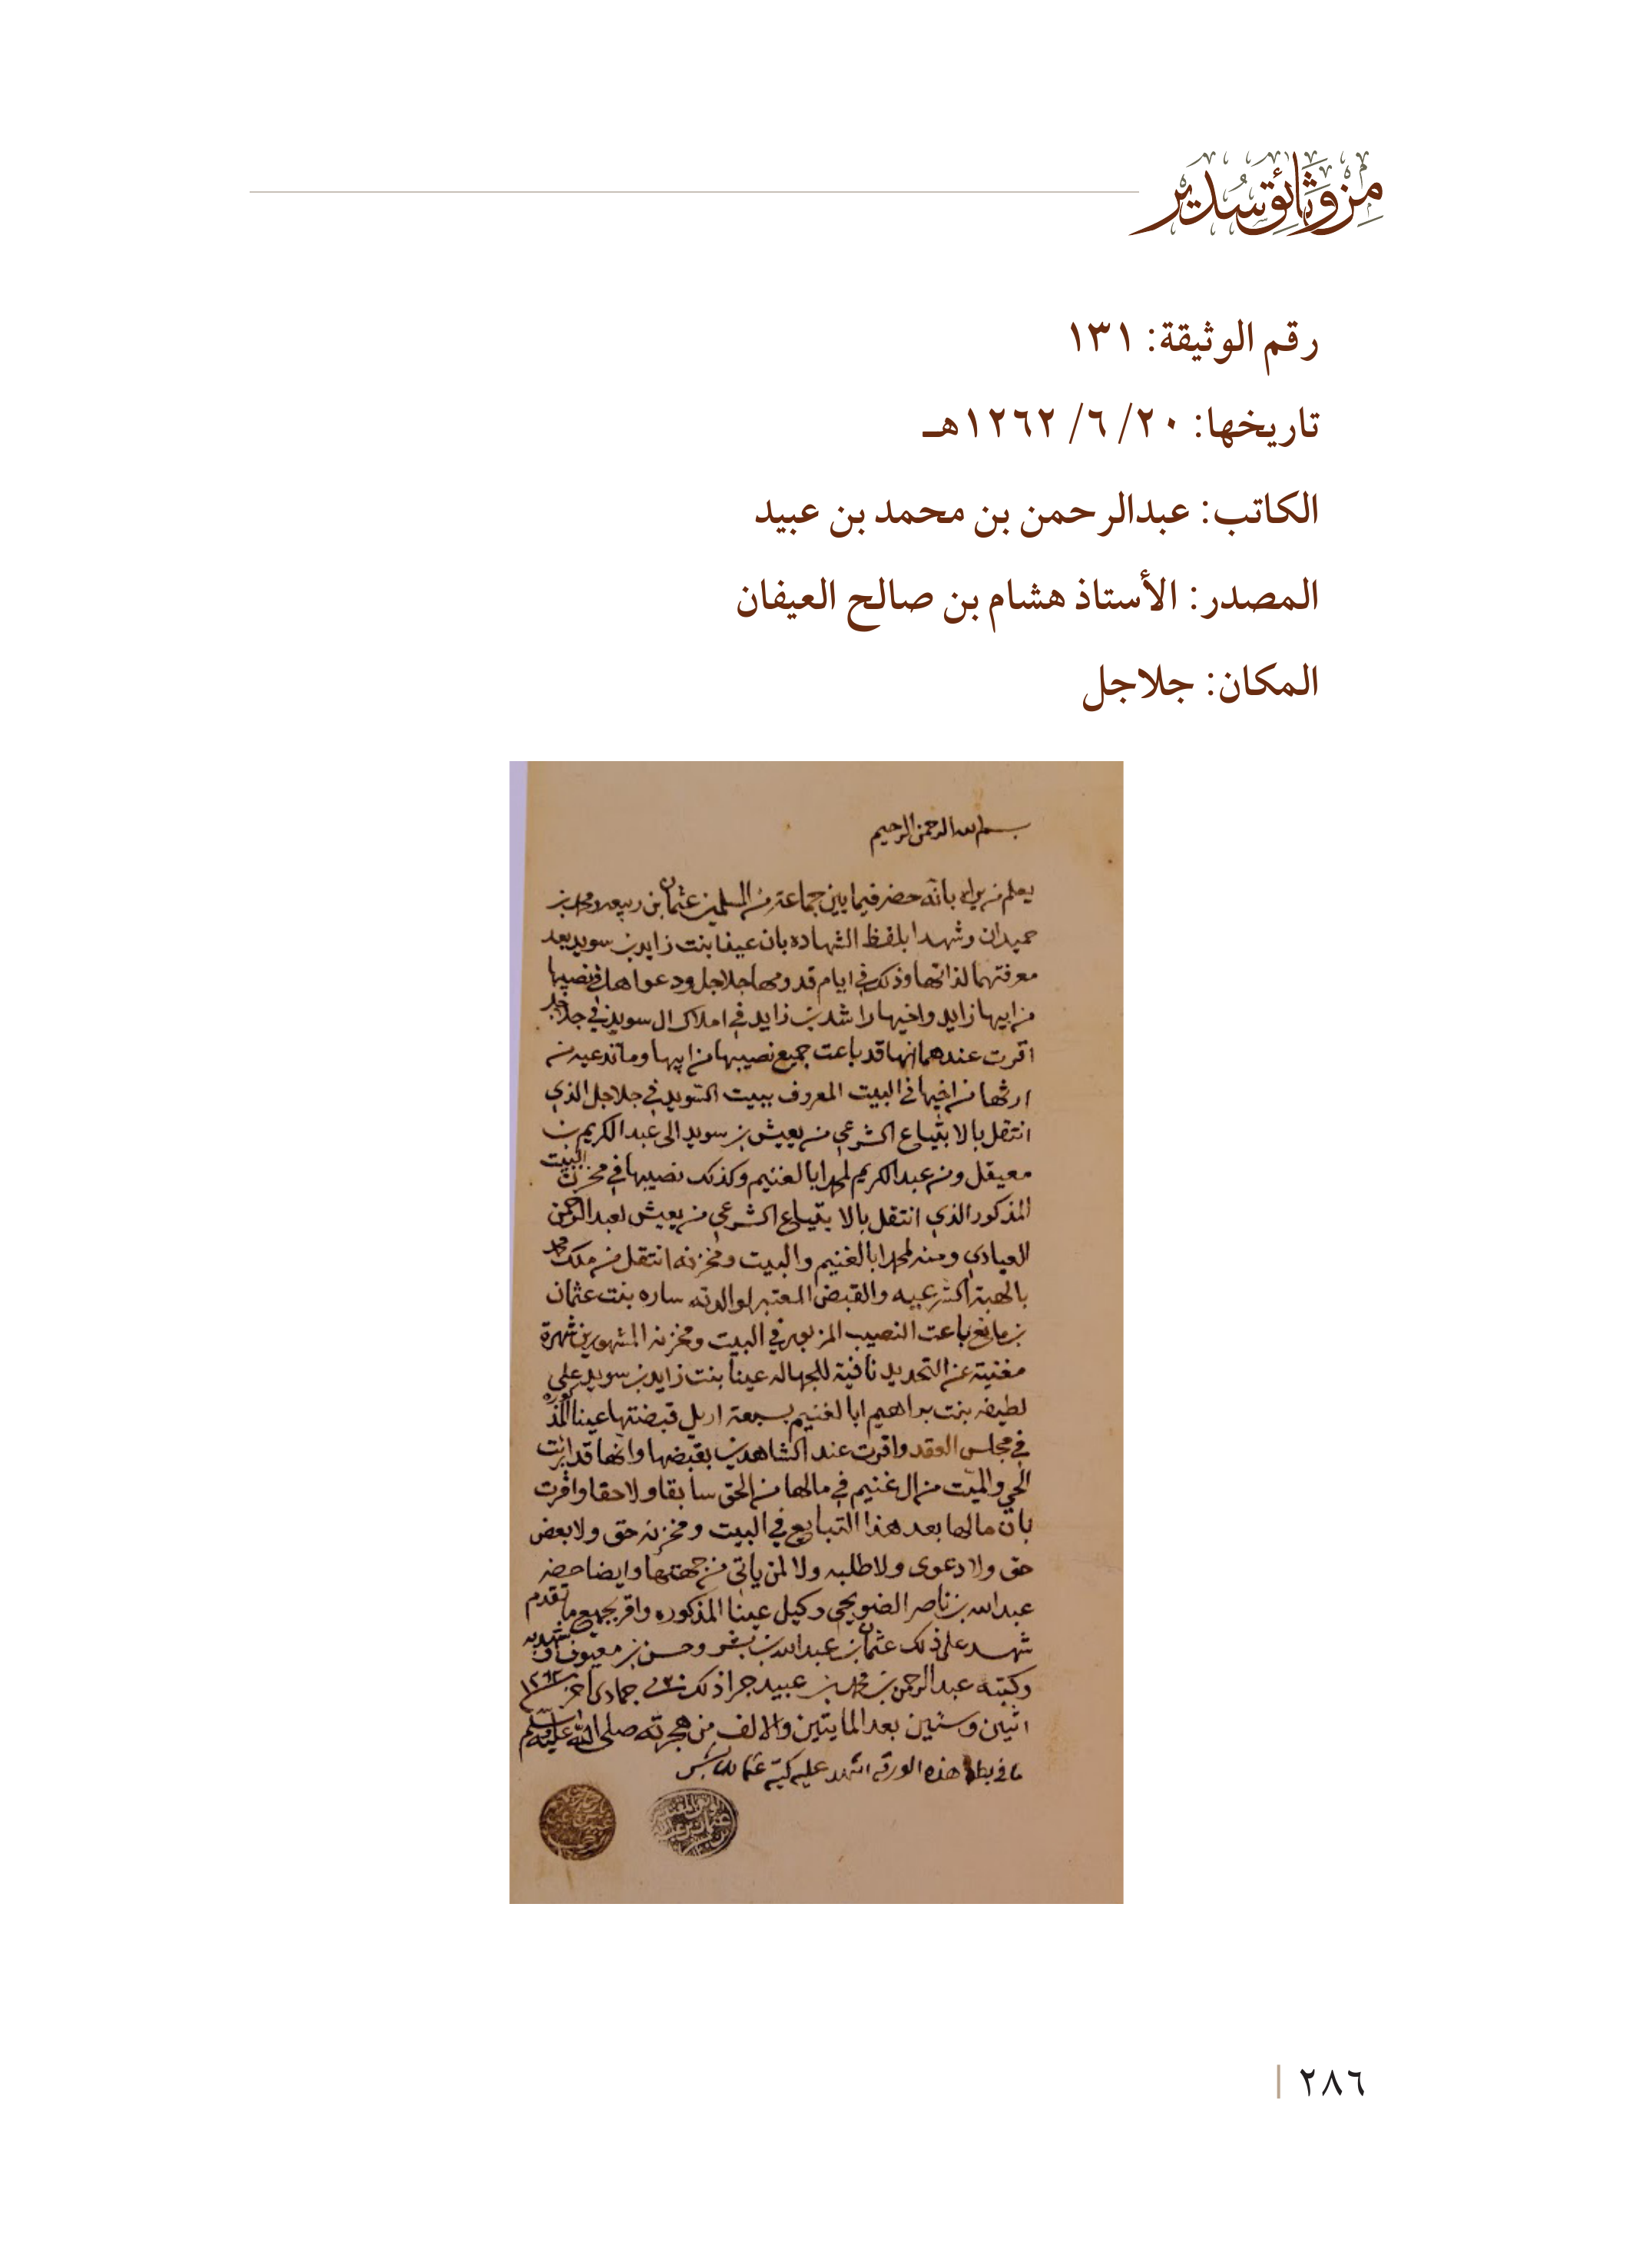 من وثائق سدير
رقم الوثيقة: ١٣١
تاريخها: ٢٠/ ٦/ ١٢٦٢هـ
الكاتب: عبدالرحمن بن محمد بن عبيد
المصدر: الأستاذ هشام بن صالح العيفان
المكان: جلاجل
بسم الله الرحمن الرحيم
يعلم من يراه بانه حضر فيما بين جماعة من المسلمين عثمان بن ربيعه ومحمد بن
حميدان وشهدا بلفظ الشهاده بان عينا بنت زايد بن سويد بعد
معرفتهما لذاتها وذلك في ايام قدومها جلاجل ودعواها في نصيبها
من ابيها زايد واخيها راشد بن زايد في املاك ال سويد في جلاجل
اقرت عندهما انها قد باعت جميع نصيبها من ابيها وما تدعيه من
ارثها من اخيها في البيت المعروف ببيت السويد في جلاجل الذي
انتقل بالابتياع الشرعي من يعيش بن سويد الى عبد الكريم بن
معيقل ومن عبد الكريم لمحمد ابا الغنيم وكذلك نصيبها في مخزن البيت
المذكور الذي انتقل بالابتياع الشرعي من يعيش لعبد الرحمن
العيادي ومنه لمحمد ابا الغنيم والبيت ومخزنه انتقل من ملك محمد
بالهبة الشرعيه والقبض المعتبر لوالدته ساره بنت عثمان
بن مانع باعت النصيب المزبور في البيت ومخزنه المشهورين شهرة
مغنية عن التحديد نافية للجهاله عينا بنت زايد بن سويد على
لطيفه بنت براهيم ابا الغنيم بسبعة اريل قبضتها عينا المذكوره
في مجلس العقد واقرت عند الشاهدين بقبضها وانها قد ابرئت
الحي والميت من ال غنيم في مالها من الحق سابقا ولاحقا واقرت
بان مالها بعد هذا التبايع في البيت ومخزنه حق ولا بعض
حق ولا دعوى ولا طلبه ولا لمن ياتي من جهتها وايضا حضر
عبد الله بن ناصر الضويحي وكيل عينا المذكوره واقر بجميع ما تقدم
شهد على ذلك عثمان بن عبد الله بن بشر وحسن بن معيوف وشهد به
وكتبه عبد الرحمن بن محمد بن عبيد جرا ذلك ٢٠ في جمادى اخر ١٢٦٢
اثنين وستين بعد المايتين والالف من هجرته صلى الله عليه وسلم
ما في بطن هذه الورقه اشهد عليه كتبه عثمان بن بشر
٢٨٦